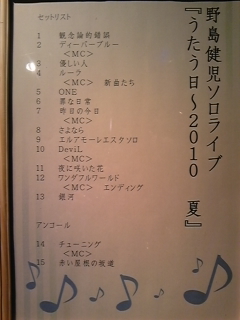 野島健児ソロライブ
『うたう日～2010 夏』
セットリスト
1 観念論的錯誤
2 ディーパーブルー
＜MC＞
3 優しい人
4 ルーラ
＜MC＞ 新曲たち
5 ONE
6 罪な日常
7 昨日の今日
＜MC＞
8 さよなら
9 エルアモーレエスタソロ
10 DeviL
＜MC＞
11 夜に咲いた花
12 ワンダフルワールド
＜MC＞ エンディング
13 銀河
アンコール
14 チューニング
＜MC＞
15 赤い屋根の坂道